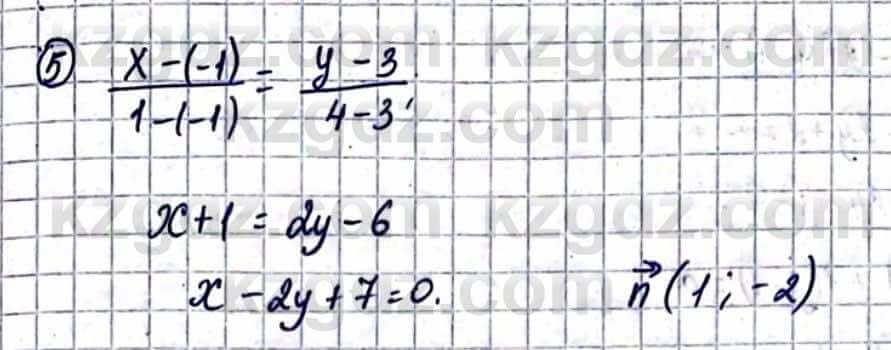 kzgdz.com kzgdz.com
⑤ (x-(-1))/(1-(-1)) = (y-3)/(4-3),
kzgdz.com
kzgdz.com kzgdz.com
x+1 = 2y-6
x-2y+7=0. n⃗(1;-2)
kzgdz.com